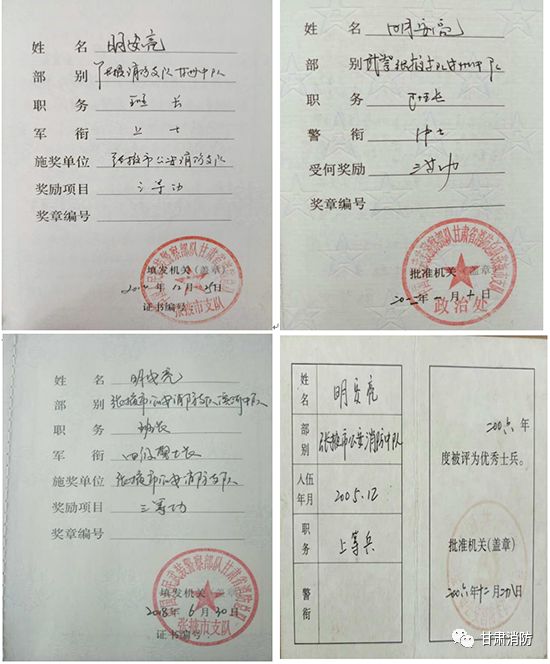 姓 名 明安亮
部 别 张掖消防支队甘州中队
职 务 班长
军 衔 上士
施奖单位 张掖市公安消防支队
奖励项目 三等功
奖章编号
填发机关(盖章)
年12月25日
证书编号:
张掖市支队
姓 名 明安亮
部 别 武警张掖支队甘州中队
职 务 班长
警 衔 中士
受何奖励 三等功
奖章编号
批准机关(盖章)
政治处
姓 名 明安亮
部 别 张掖市公安消防支队滨河中队
职 务 班长
军 衔 四级警士长
施奖单位 张掖市公安消防支队
奖励项目 三等功
奖章编号
填发机关(盖章)
2018年6月30日
证书编号:
张掖市支队
姓名 明安亮
部别 张掖市公安消防中队
入伍年月 2005.12
职务 上等兵
警衔
2006年
度被评为优秀士兵。
批准机关(盖章)
2006年十二月二十八日
甘肃消防